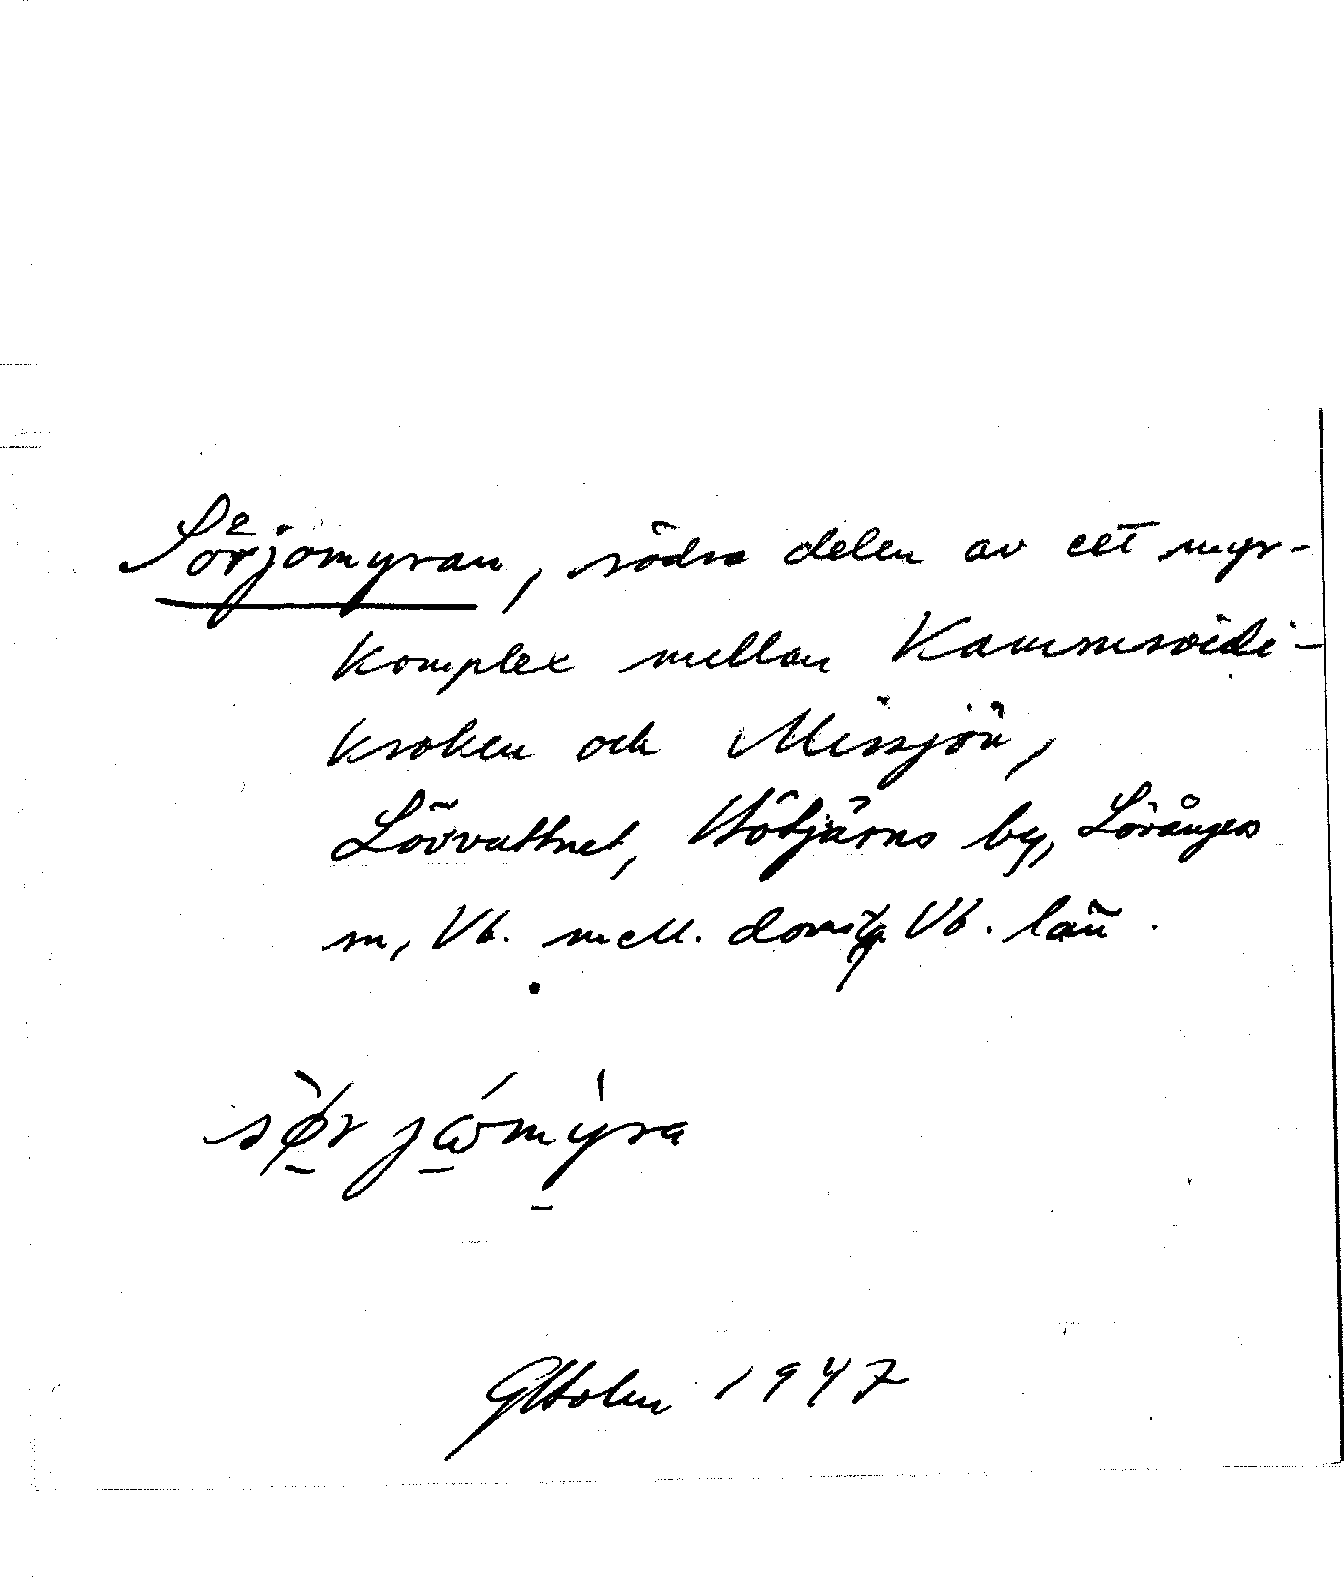 Sörjomyran, södra delen av ett myr-
komplex mellan
kroken och Missjön,
Lövvattnet, Hötjärns by, Lövångers
sn, Vb. mell. doms. Vb. län.
sø̀r jωmyra
GHolm 1947